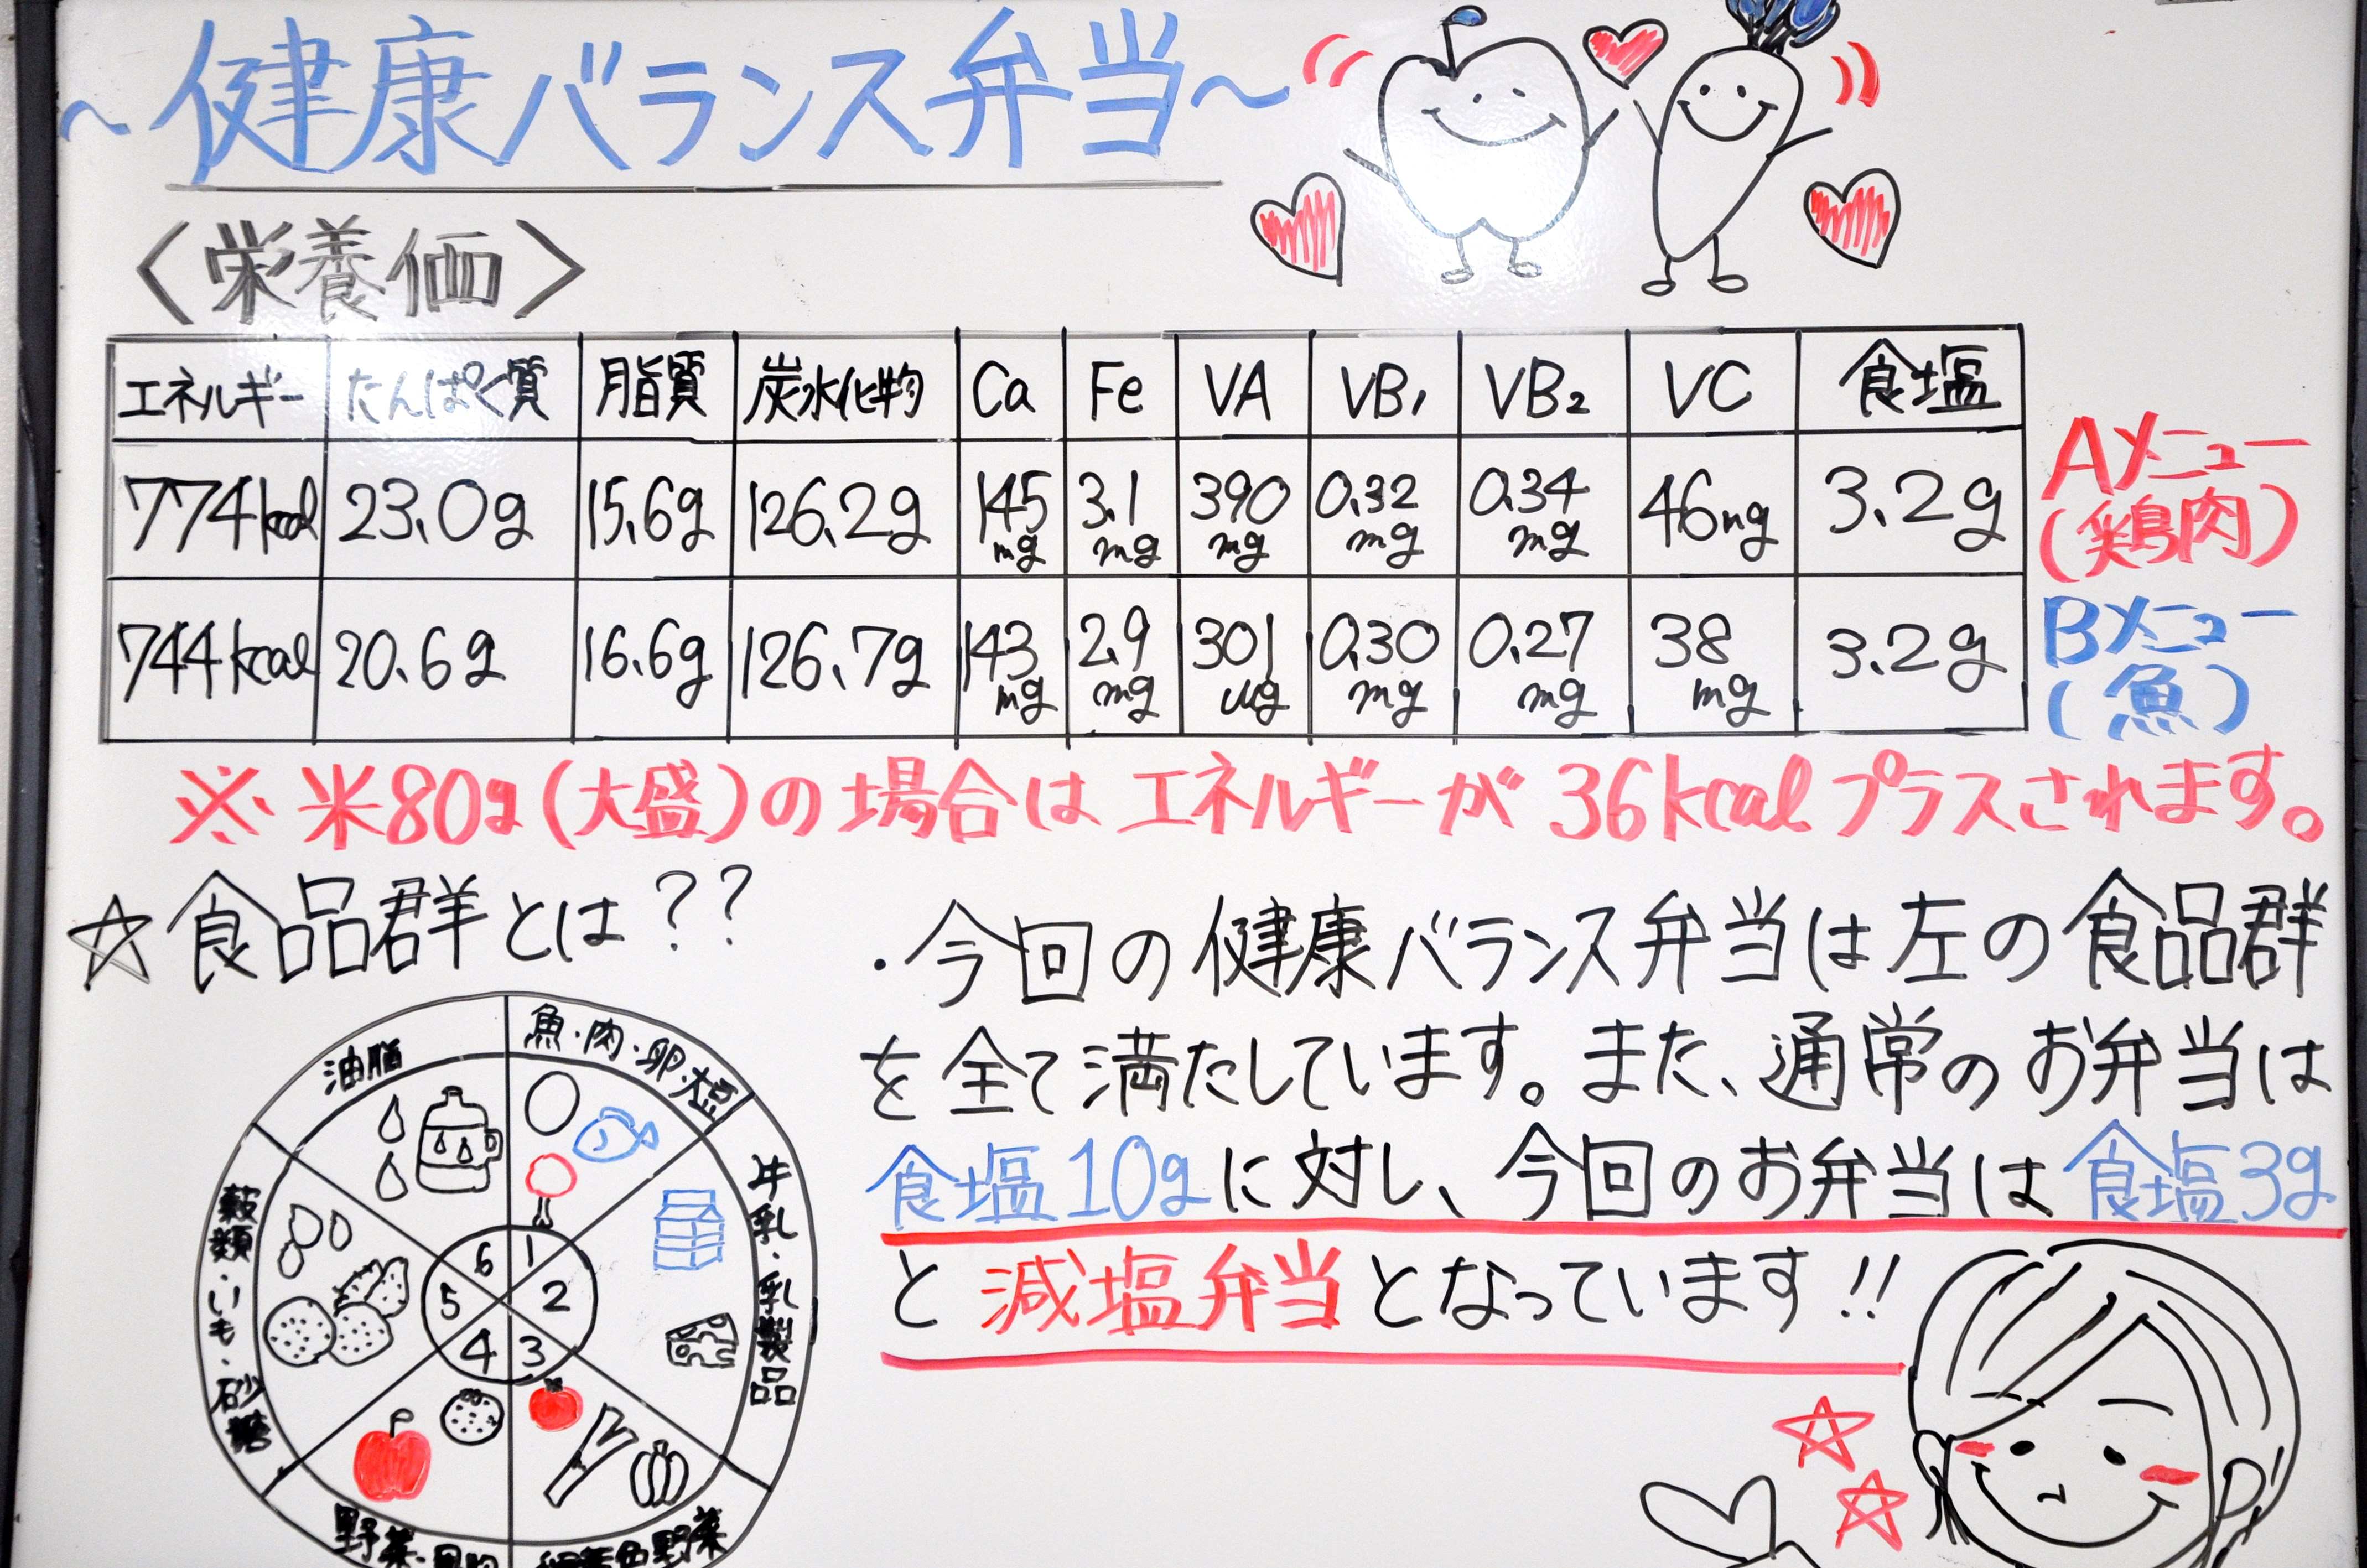 ～健康バランス弁当～
〈栄養価〉
エネルギー たんぱく質 脂質 炭水化物 Ca Fe VA VB₁ VB₂ VC 食塩
774kcal 23.0g 15.6g 126.2g 145mg 3.1mg 390mg 0.32mg 0.34mg 46mg 3.2g Aメニュー(鶏肉)
744kcal 20.6g 16.6g 126.7g 143mg 2.9mg 301μg 0.30mg 0.27mg 38mg 3.2g Bメニュー(魚)
※米80g(大盛)の場合はエネルギーが36kcalプラスされます。
☆食品群とは??
油脂
魚・肉・卵・大豆
牛乳・乳製品
穀類・いも・砂糖
6 1
5 2
4 3
野菜・果物
緑黄色野菜
・今回の健康バランス弁当は左の食品群
を全て満たしています。また、通常のお弁当は
食塩10gに対し、今回のお弁当は食塩3g
と減塩弁当となっています!!